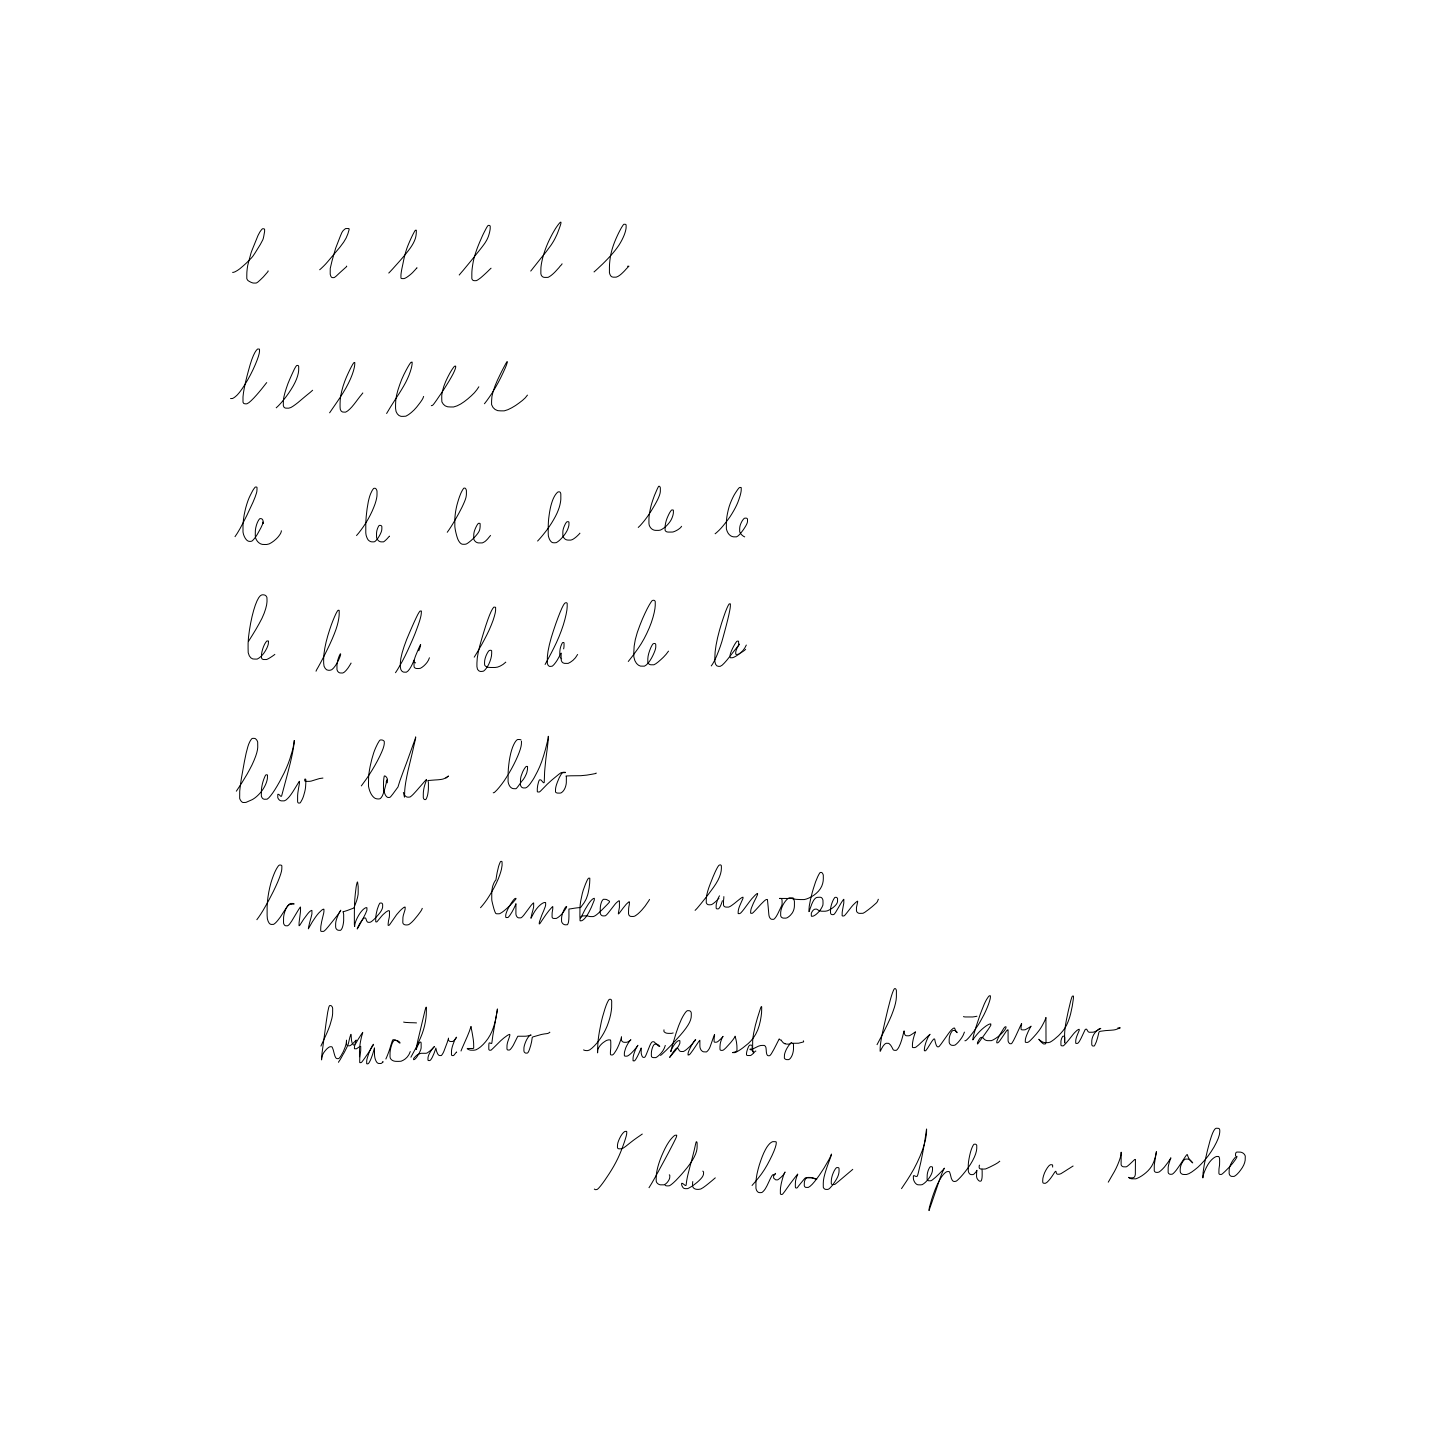 l l l l l l
l l l l l l
le le le le le le
le le le le le le le
leto leto leto
lamoken lamoken lamoken
hračkarstvo hračkarstvo hračkarstvo
V lete bude teplo a sucho